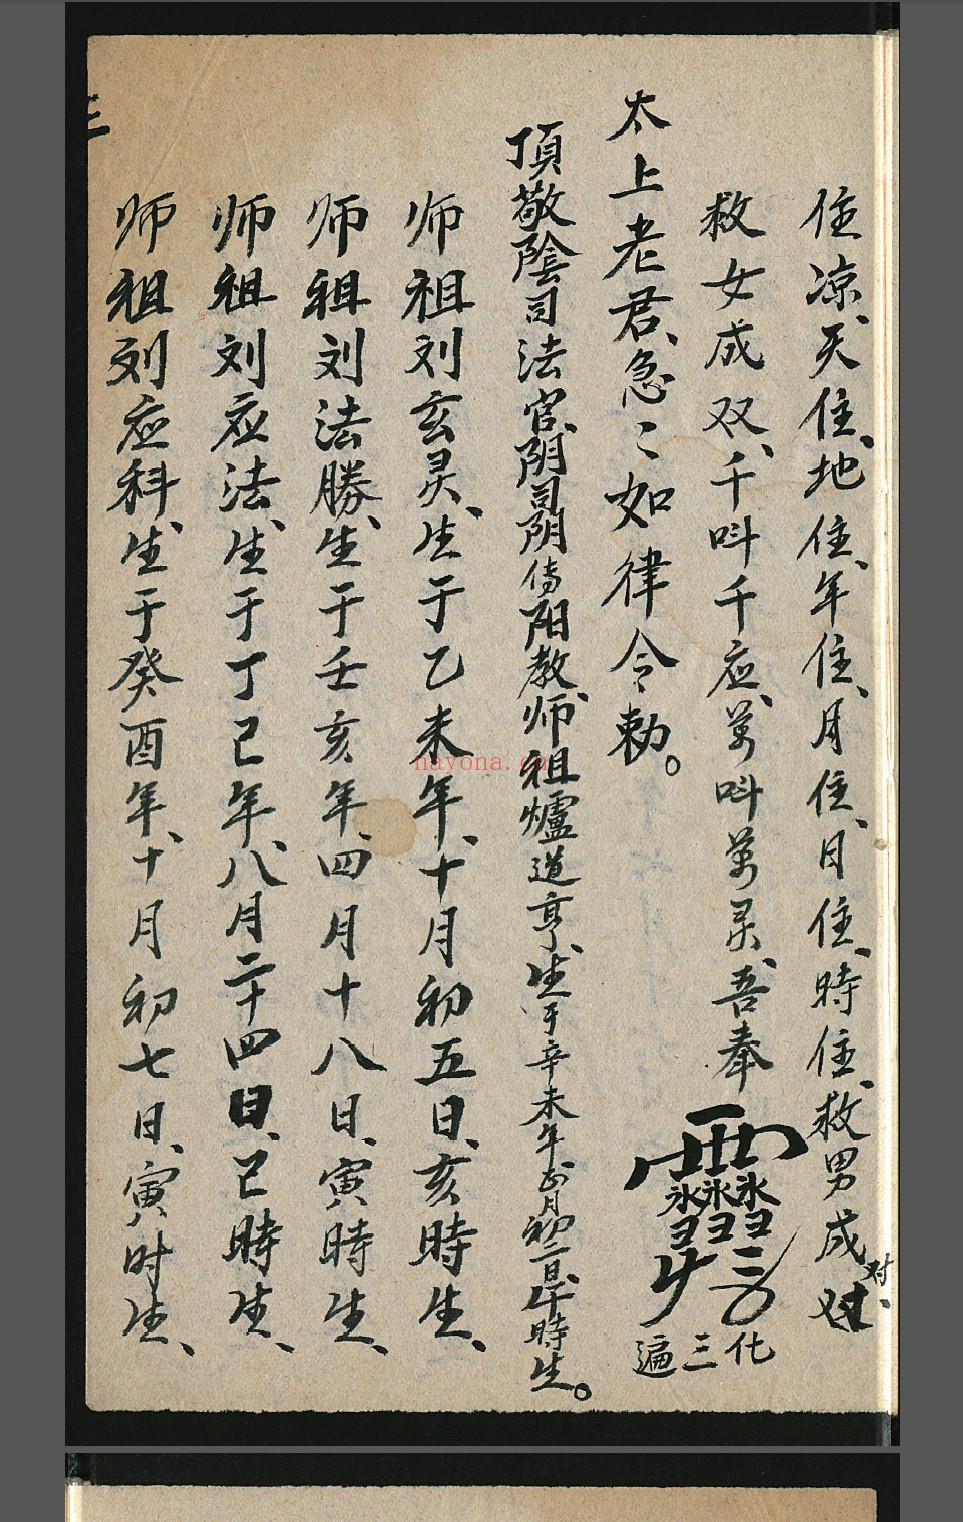 住凉、天住、地住、年住、月住、日住、時住、救男成对、
对
救女成双、千呌千应、萬呌萬灵、吾奉
化三遍
太上老君、急〻如律令勅。
頂敬陰司法官、阴司阴傳阳教、师祖爐道亨、生于辛未年正月初二日、午時生。
师祖刘玄灵、生于乙未年、十月初五日、亥時生、
师祖刘法勝、生于壬亥年、四月十八日、寅時生、
师祖刘应法、生于丁己年、八月二十四日、己時生、
师祖刘应科、生于癸酉年、十月初七日、寅时生、
三